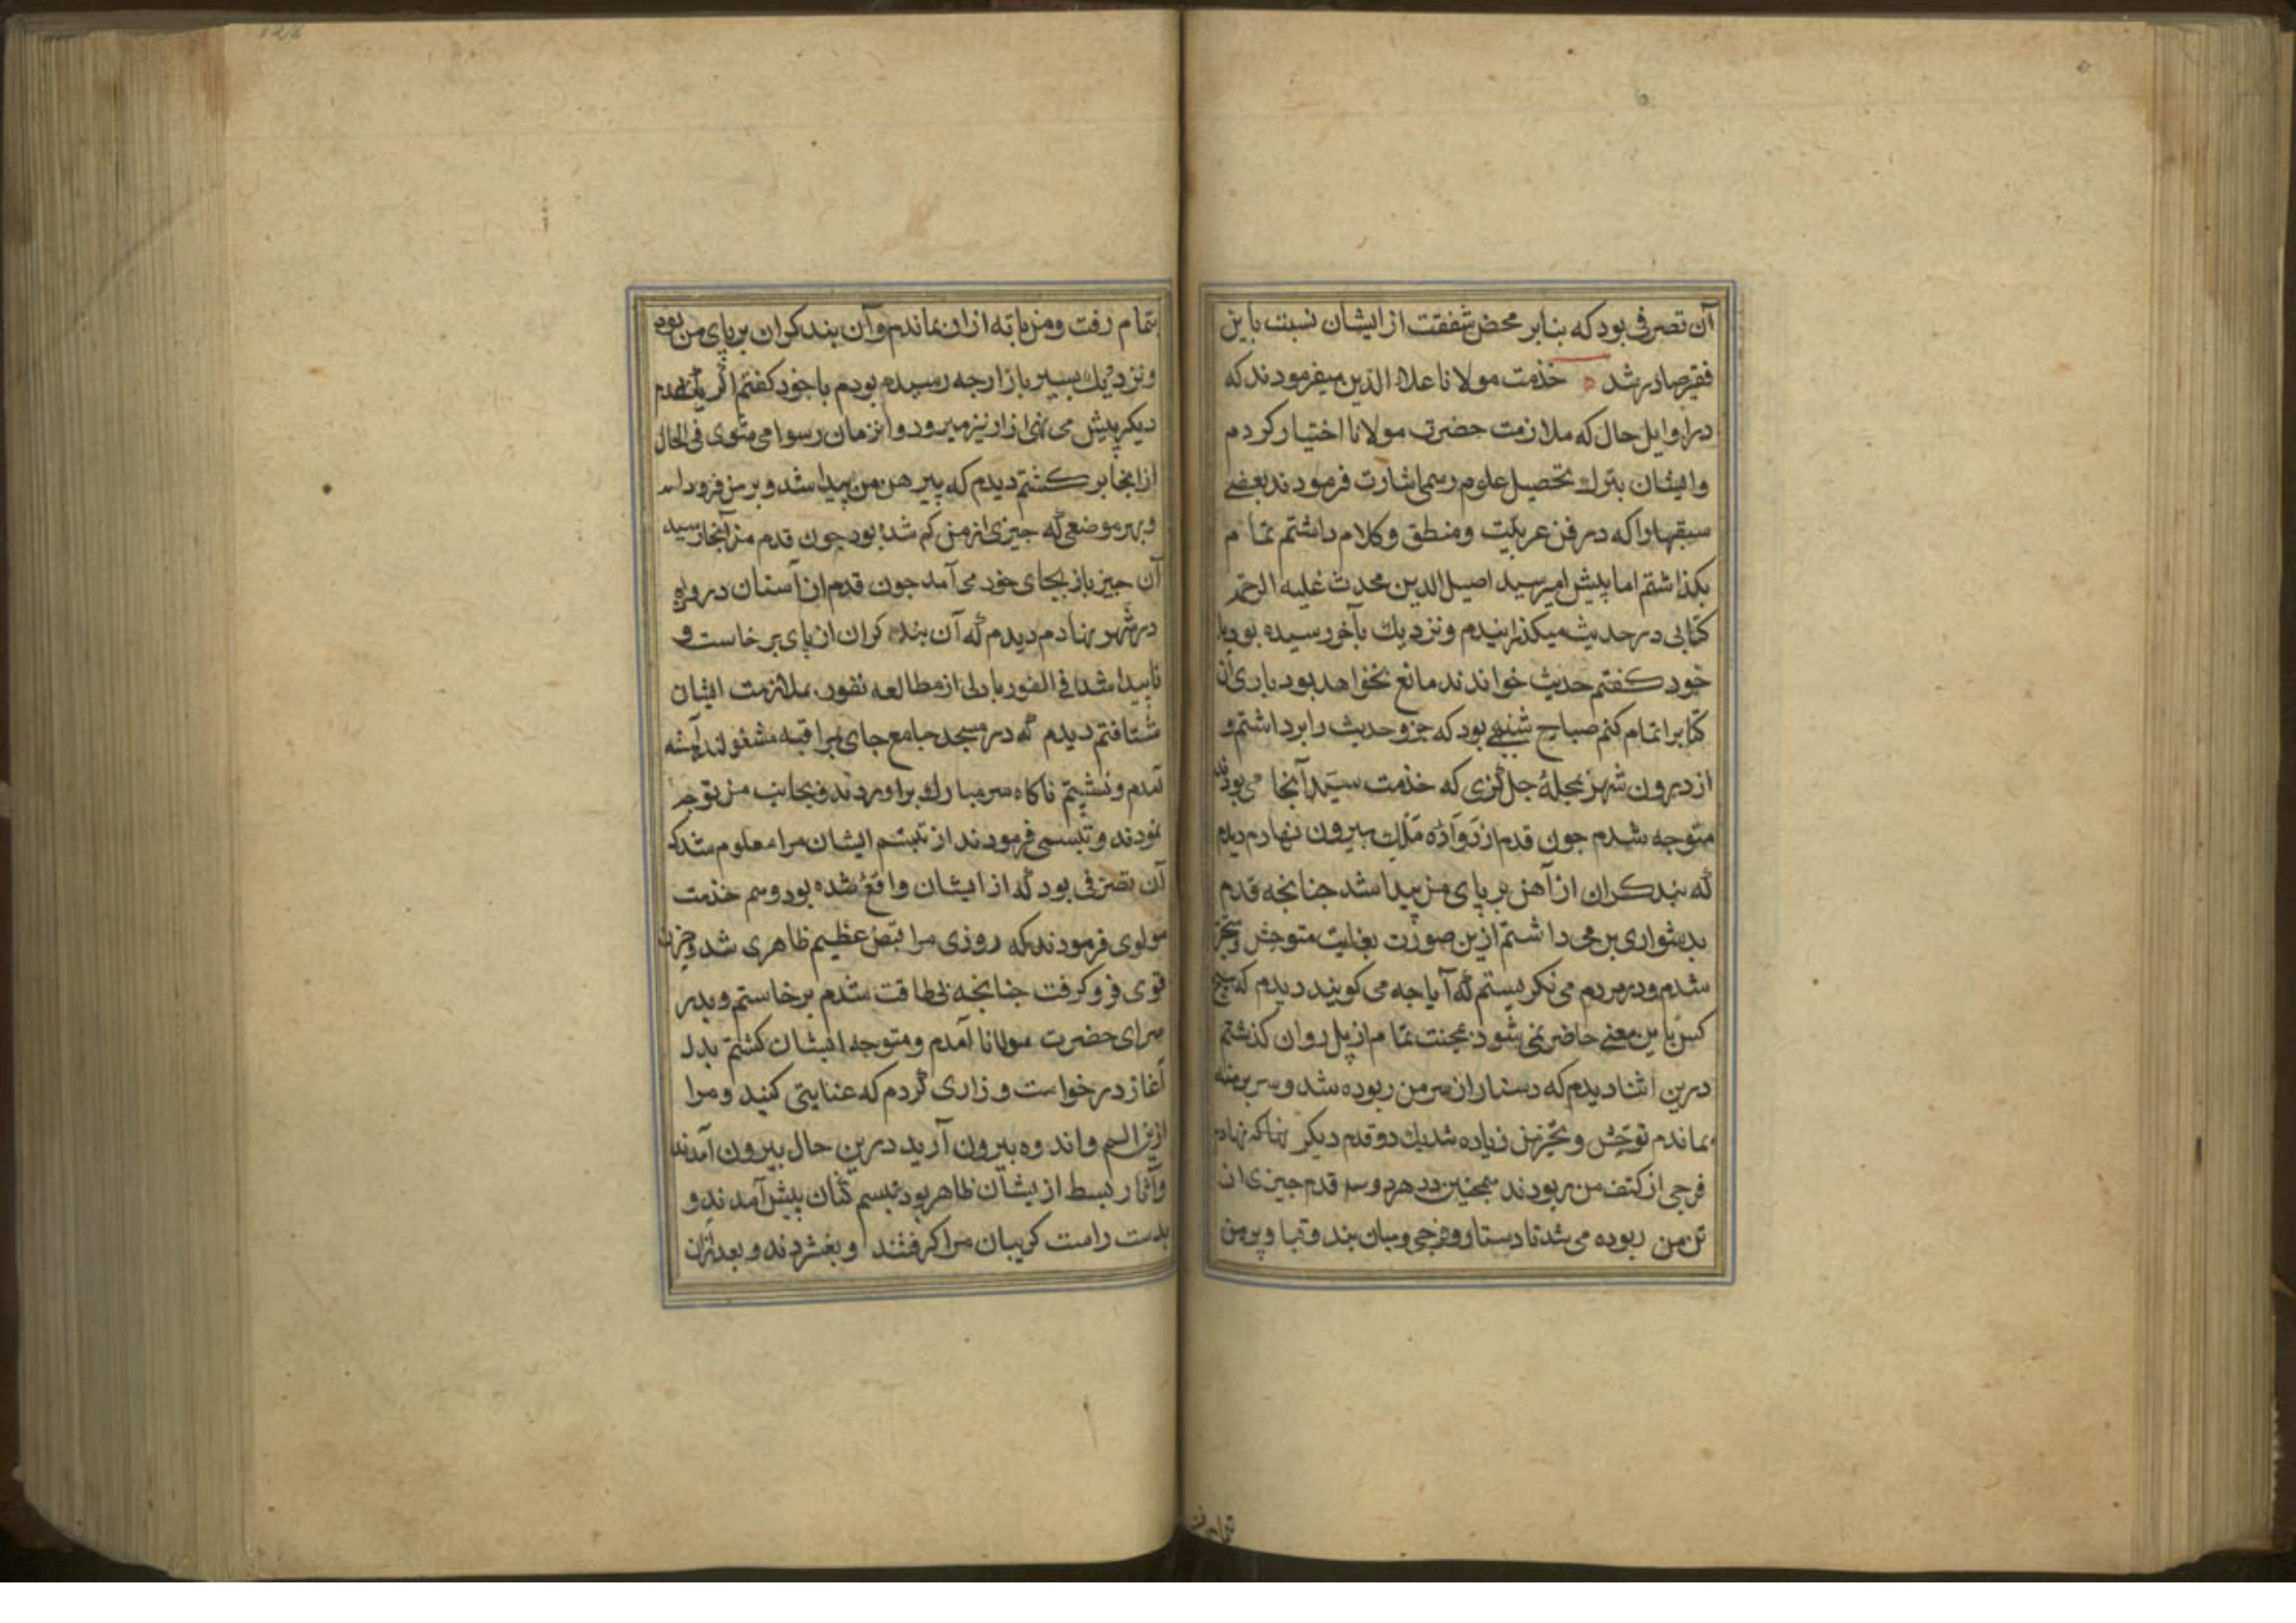 آن تصرفی بود که بنابر محض شفقت از ایشان نسبت باین
فقیر صادر شد خدمت مولانا علاء الدین میفرمودند که
در اوایل حال که ملازمت حضرت مولانا اختیار کردم
وایشان بترک تحصیل علوم رسمی اشارت فرمودند بعضی
سبقها را که در فن عربیت ومنطق وکلام داشتم تمام
بکذاشتم اما پیش امیر سید اصیل الدین محدث علیه الرحمه
کتابی در حدیث میکذرانیدم ونزدیک بآخر رسیده بود با
خود کفتم حدیث خواندن مانع نخواهد بود باری آن
کتابرا تمام کنم صباح شنبهی بود که جزو حدیث را برداشتم و
از درون شهر بمحلهٔ جل کزی که خدمت سید آنجا می بودند
متوجه شدم جون قدم از دروازه ملک بیرون نهادم دیدم
که بند کران از آهن بر پای من پیدا شد جنانجه قدم
بدشواری بر می داشتم ازین صورت بغایت متوحش ومتحیر
شدم ودر مردم می نکریستم که آیا جه می کویند دیدم که هیچ
کس باین معنی حاضر نمی شود بمحنت تمام از پل روان کذشتم
درین اثنا دیدم که دستار از سر من ربوده شد وسر برهنه
بماندم توحش وتحیر من زیاده شد یک دو قدم دیکر که نهادم
فرجی از کتف من ربودند همچنین در هر دو سه قدم جیزی از
تن من ربوده می شد تا دستار وفرجی ومیان بند وقبا وپیرهن
تمام رفت
بتمام رفت ومن با ته ازار بماندم وآن بند کران بر پای من بود
ونزدیک بسر بازارجه رسیده بودم با خود کفتم اکر یک قدم
دیکر پیش می نهی ازار نیز میرود واین زمان رسوا می شوی فی الحال
از انجا بر کشتم دیدم که پیرهن من پیدا شد وبر من فرود آمد
وبهر موضعی که جیزی از من کم شده بود جون قدم من آنجا رسید
آن جیز باز بجای خود می آمد جون قدم از آستان دروازه
در شهر نهادم دیدم که آن بند کران از پای بر خاست و
ناپیدا شد فی الفور با دلی از مطالعه نفور بملازمت ایشان
شتافتم دیدم که در مسجد جامع جای بمراقبه مشغولند آهسته
آمدم ونشستم ناکاه سر مبارک بر اوردند وبجانب من توجه
نمودند وتبسمی فرمودند از تبسم ایشان مرا معلوم شد که
آن تصرفی بود که از ایشان واقع شده بود وهم خدمت
مولوی فرمودند که روزی مرا قبض عظیم ظاهری شد وحزن
قوی فرو کرفت جنانجه بی طاقت شدم بر خاستم وبدر
سرای حضرت مولانا آمدم ومتوجه ایشان کشتم بدل
آغاز درخواست وزاری کردم که عنایتی کنید ومرا
ازین الم واندوه بیرون آرید درین حال بیرون آمدند
وآثار بسط از یشان ظاهر بود تبسم کنان پیش آمدند و
بدست راست کریبان مرا کرفتند وبفشردند وبعد ازان